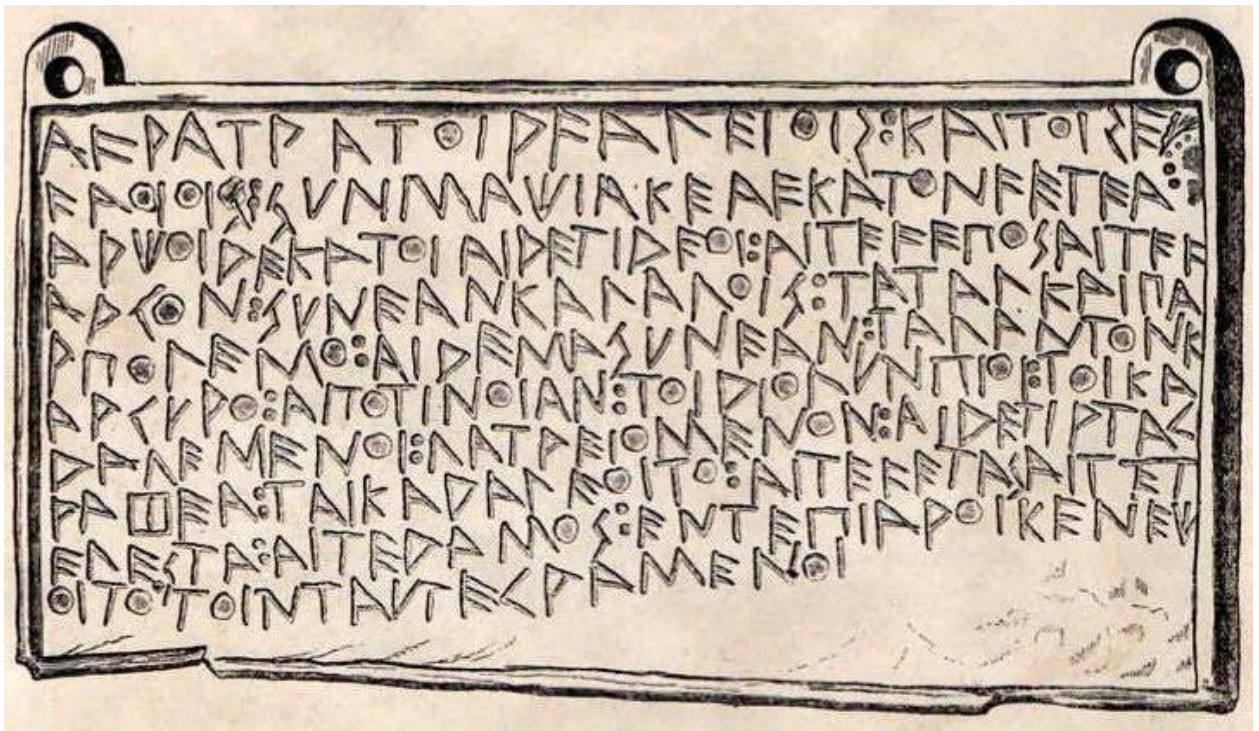 ΑϜΡΑΤΡΑΤΟΙΡϜΑΛΕΙΟΙΣ:ΚΑΙΤΟΙΣΕ
ϜΑΟΙΟΙΣ:ΣΥΝΜΑΧΙΑΚΕΑΕΚΑΤΟΝϜΕΤΕΑ
ΑΡΧΟΙΔΕΚΑΤΟΙΑΙΔΕΤΙΔΕΟΙ:ΑΙΤΕϜΕΠΟΣΑΙΤΕϜ
ΑΡΓΟΝ:ΣΥΝΕΑΝΚΑΛΑΛΟΙΣ:ΤΑΤΑΛΚΑΙΠΑ
ΡΠΟΛΕΜΟ:ΑΙΔΕΜΑΣΥΝΕΑΝ:ΤΑΛΑΝΤΟΝΚ
ΑΡΓΥΡΟ:ΑΠΟΤΙΝΟΙΑΝ:ΤΟΙΔΙΟΛΥΝΠΙΟΙ:ΤΟΙΚΑ
ΔΑΛΕΜΕΝΟΙ:ΛΑΤΡΕΙΟΜΕΝΟΝ:ΑΙΔΕΤΙΡΤΑΓ
ΡΑΦΕΑ:ΤΑΙΚΑΔΑΛΕΟΙΤΟ:ΑΙΤΕϜΕΤΑΣΑΙΤΕΤ
ΕΛΕΣΤΑ:ΑΙΤΕΔΑΜΟΣ:ΕΝΤΕΠΙΑΡΟΙΚΕΝΕΧ
ΟΙΤΟΤΟΙΝΤΑΥΤΕΓΡΑΜΕΝΟΙ